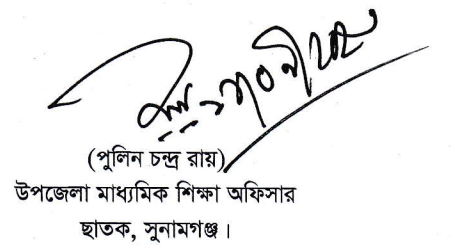 (পুলিন চন্দ্র রায়)
উপজেলা মাধ্যমিক শিক্ষা অফিসার
ছাতক, সুনামগঞ্জ।